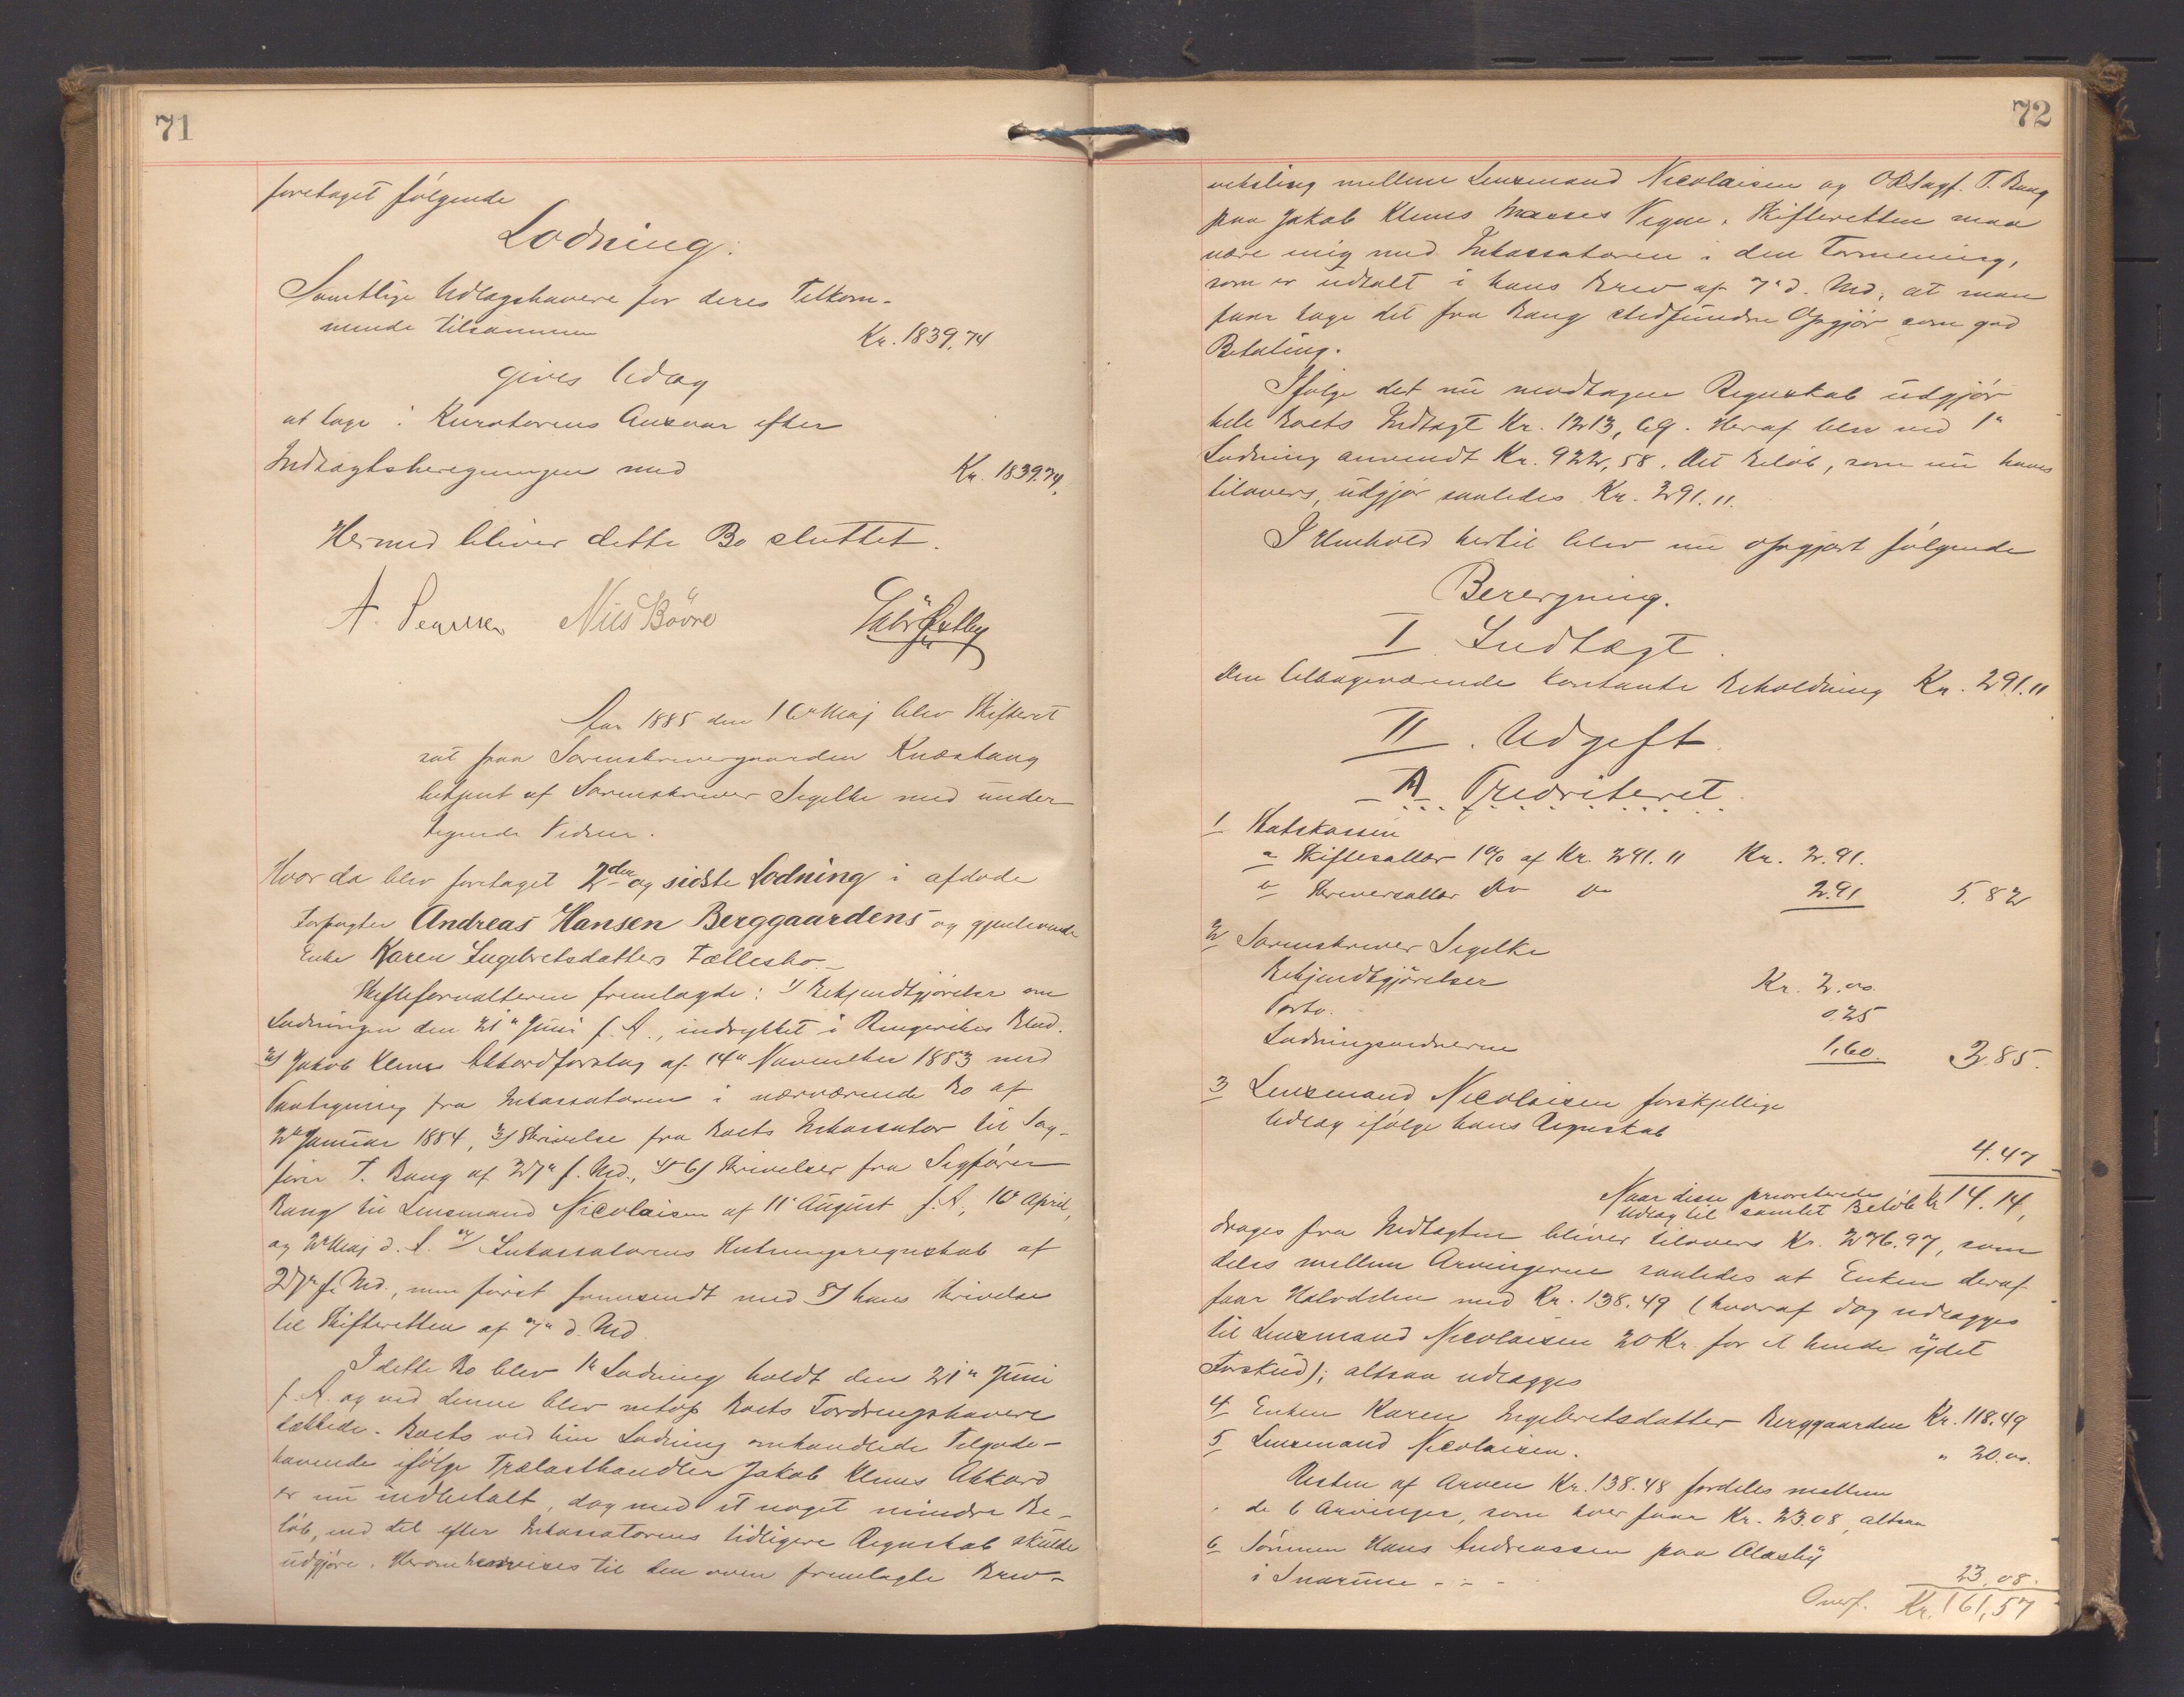 71
foretaget følgende
Lodning:
Samtlige Udlægshavere for deres Tilkom-
mende tilsammen Kr. 1839,74
gives Udlæg
at tage i Kuratorens Ansvar efter
Indtægtsberegningen med Kr. 1839.74.
Hermed bliver dette Bo sluttet.
Nils Bövre
Aar 1885 den 16de Maj blev Skifteret
sat paa Sorenskrivergaarden Knæstang
betjent af Sorenskriver Segelke med under-
tegnede Vidner.
Hvor da blev foretaget 2den og sidste Lodning i afdøde
Forpagter Andreas Hansen Berggaardens og gjenlevende
Enke Karen Ingebretsdatters Fællesbo.
Skifteforvalteren fremlagde: 1/ Bekjendtgjørelse om
Lodningen den 21de Juni f. A., indrykket i Ringerikes Blad.
2/ Jakob Klems Akkordforslag af 14de November 1883 med
Paategning fra Inkassatoren i nærværende Bo af
2de Januar 1884, 3/ Skrivelse fra Boets Inkassator til Sag-
fører T. Bang af 27de f. Md., 4-6/ Skrivelser fra Sagfører
Bang til Lensmand Nicolaisen af 11te August f. A., 16de April,
og 2de Maj d. A. 7/ Inkassatorens Slutningsregnskab af
27de f. Md., men først fremsendt med 8/ hans Skrivelse
til Skifteretten af 7de d. Md.
I dette Bo blev 1ste Lodning holdt den 21de Juni
f. A. og ved denne blev netop Boets Fordringshavere
dækkede. Boets ved hin Lodning omhandlede Tilgode-
havende ifølge Trælasthandler Jakob Klems Akkord
er nu indbetalt, dog med et noget mindre Be-
løb, end det efter Inkassatorens tidligere Regnskab skulde
udgjøre. Herom henvises til den oven fremlagte Brev-
72
veksling mellem Lensmand Nicolaisen og O.R.Sagf. T. Bang
paa Jakob Klems Masses Vegne. Skifteretten maa
være enig med Inkassatoren i den Formening,
som er udtalt i hans Brev af 7de d. Md., at man
faar tage det fra Bang stedfundne Opgjør som god
Betaling.
Ifølge det nu modtagne Regnskab udgjør
hele Boets Indtægt Kr. 1213,69. Heraf blev ved 1ste
Lodning anvendt Kr. 922,58. Det Beløb, som nu haves
tilovers, udgjør saaledes Kr. 291.11.
I Henhold hertil blev nu opgjort følgende
Beregning.
I. Indtægt.
Den tilbageværende kontante Beholdning Kr. 291.11
II. Udgift.
A. Prioriteret.
1 Statskassen
a Skiftesallær 1% af Kr. 291.11 Kr. 2.91.
b Skriversallær Do Do 2.91 5.82
2 Sorenskriver Segelke
Bekjendtgjørelser Kr. 2.00
Porto. 0.25
Lodningsvidnerne 1,60. 3.85.
3 Lensmand Nicolaisen forskjellige
Udlæg ifølge hans Regnskab
4.47
Naar disse prioriterede
Udlæg til samlet Beløb Kr 14.14,
drages fra Indtægten bliver tilovers Kr. 276.97, som
deles mellem Arvingerne saaledes at Enken deraf
faar Halvdelen med Kr. 138.49 (hvoraf dog udlægges
til Lensmand Nicolaisen 20 Kr. for et hende ydet
Forskud); altsaa udlægges
4 Enken Karen Ingebretsdatter Berggaarden Kr. 118.49
5 Lensmand Nicolaisen. " 20.00.
Resten af Arven Kr. 138.48 fordeles mellem
de 6 Arvinger, som hver faar Kr. 23.08, altsaa
6 Sønnen Hans Andreassen paa
i Snarum - - -
23.08.
Overf. Kr. 161,57